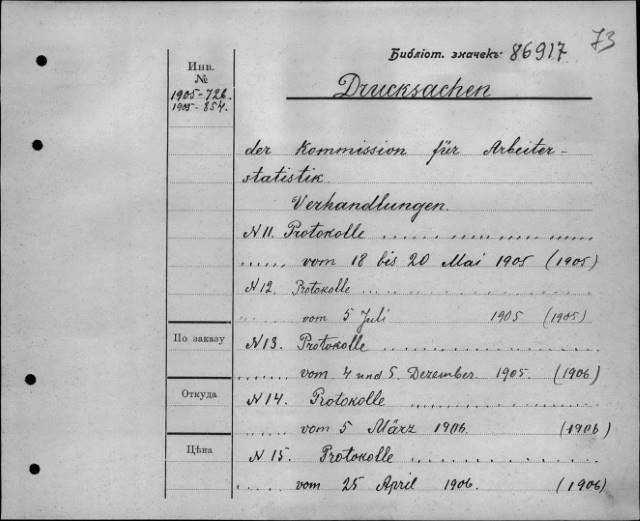 73
Библіот. значекъ: 86917
Инв.
№
1905-726.
1905-854.
Drucksachen
der Kommission für Arbeiter-
statistik.
Verhandlungen.
N 11. Protokolle ....................
...... vom 18 bis 20 Mai 1905 (1905)
N 12. Protokolle ....................
...... vom 5 Juli 1905 (1905)
По заказу
N 13. Protokolle ....................
...... vom 4 und 5. Dezember. 1905. (1906)
Откуда
N 14. Protokolle ....................
...... vom 5 März 1906. (1906)
Цѣна
N 15. Protokolle ....................
...... vom 25 April 1906. (1906)